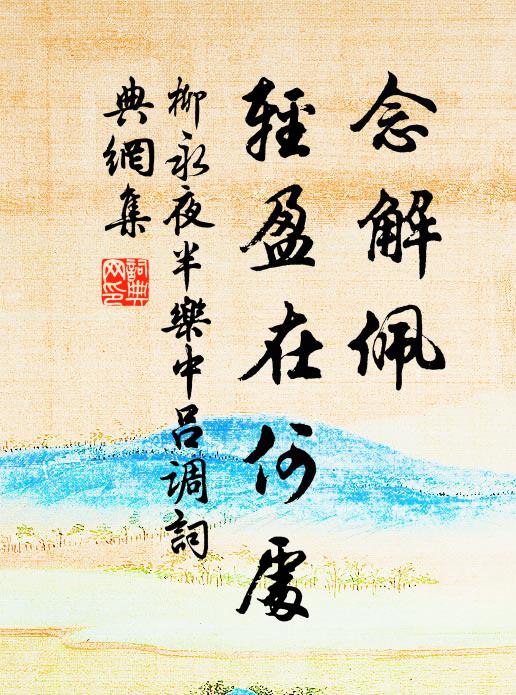 念解佩
輕盈在何處
柳永夜半樂中呂調詞
典網集
詞典网印